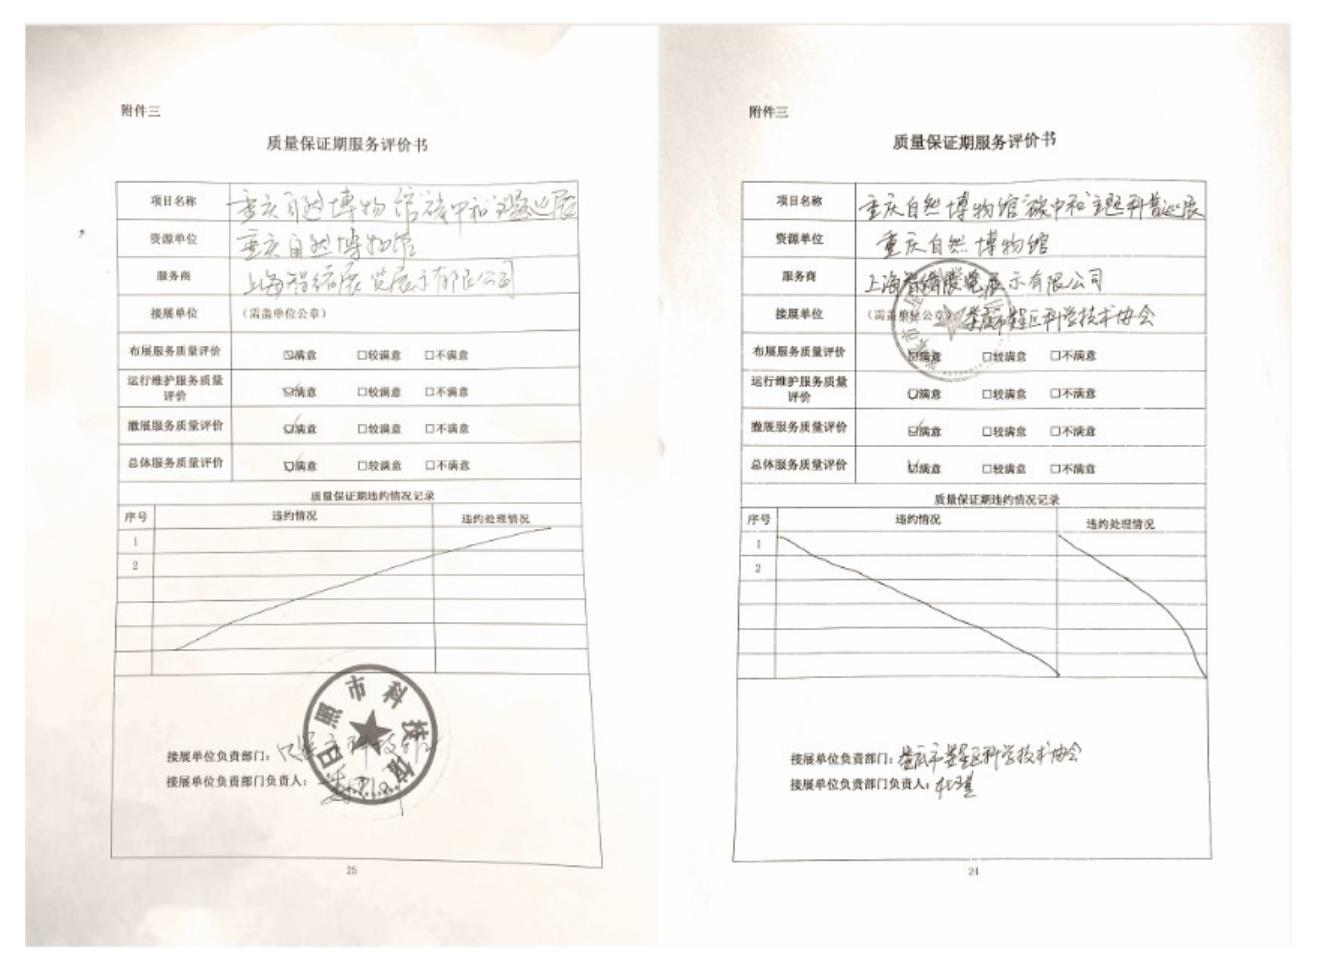 附件三
质量保证期服务评价书
项目名称 重庆自然博物馆碳中和主题巡展
资源单位 重庆自然博物馆
服务商 上海智绪展览展示有限公司
接展单位 （需盖单位公章）
布展服务质量评价 ☑满意 □较满意 □不满意
运行维护服务质量
评价 ☑满意 □较满意 □不满意
撤展服务质量评价 ☑满意 □较满意 □不满意
总体服务质量评价 ☑满意 □较满意 □不满意
质量保证期违约情况记录
序号 违约情况 违约处理情况
1
2
日照市科技馆
接展单位负责部门：日照市科技馆
接展单位负责部门负责人：
25
附件三
质量保证期服务评价书
项目名称 重庆自然博物馆碳中和主题科普巡展
资源单位 重庆自然博物馆
服务商 上海智绪展览展示有限公司
接展单位 （需盖单位公章）科学技术协会
布展服务质量评价 ☑满意 □较满意 □不满意
运行维护服务质量
评价 ☑满意 □较满意 □不满意
撤展服务质量评价 ☑满意 □较满意 □不满意
总体服务质量评价 ☑满意 □较满意 □不满意
质量保证期违约情况记录
序号 违约情况 违约处理情况
1
2
接展单位负责部门：科学技术协会
接展单位负责部门负责人：
24